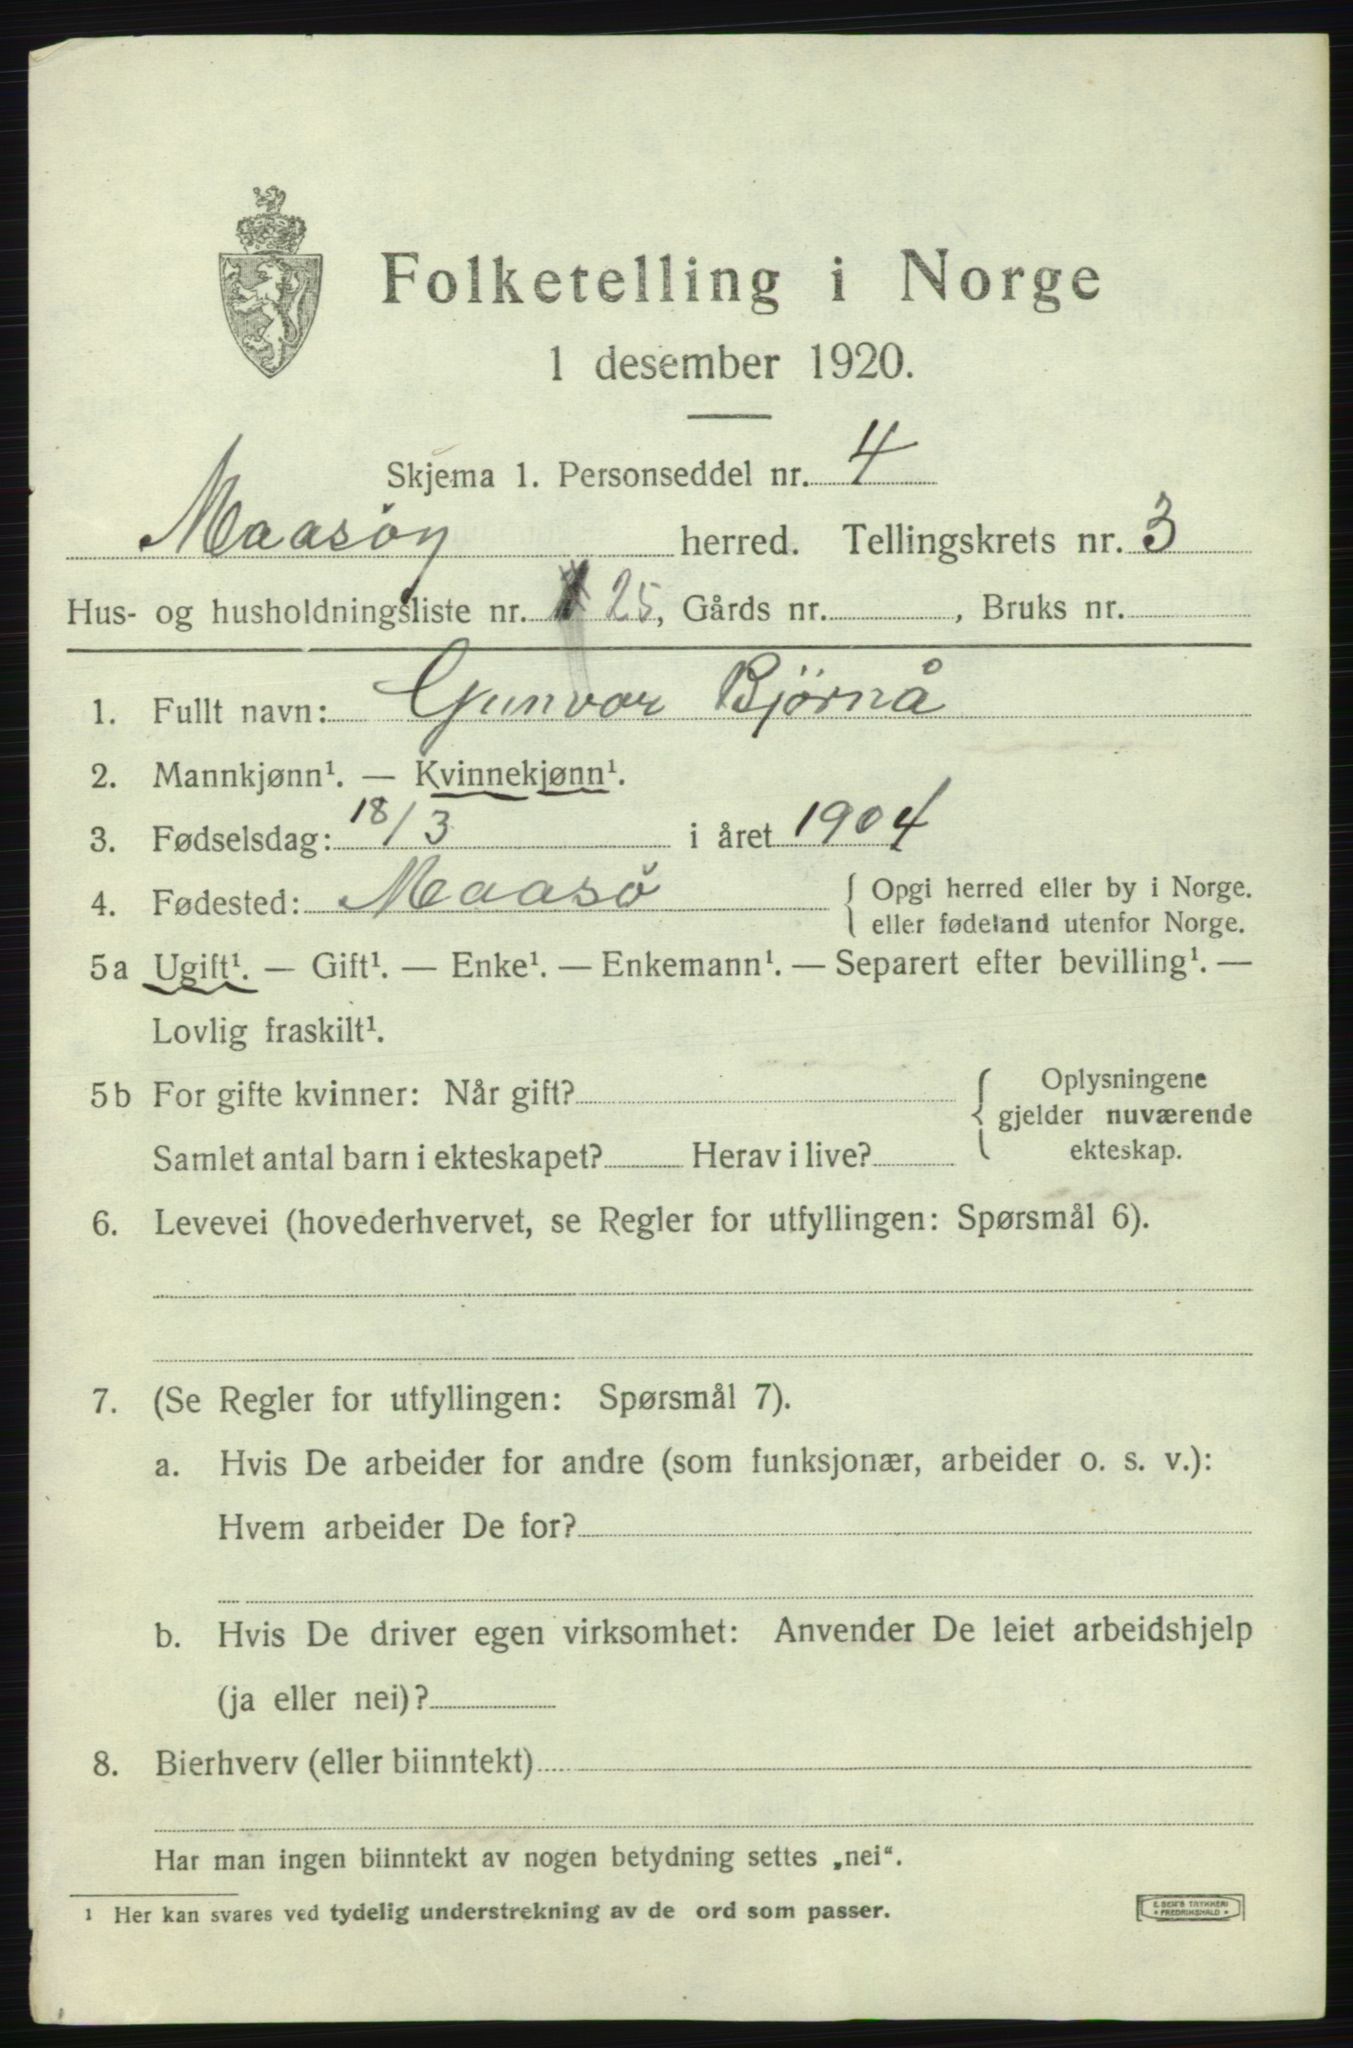 Folketelling i Norge
1 desember 1920.
Skjema 1. Personseddel nr. 4
Maasöy herred. Tellingskrets nr. 3
Hus- og husholdningsliste nr. 25, Gårds nr. , Bruks nr.
1. Fullt navn: Gunvor Björnå
2. Mannkjønn¹. — Kvinnekjønn¹.
3. Fødselsdag: 18/3 i året 1904
4. Fødested: Maasö { Opgi herred eller by i Norge.
eller fødeland utenfor Norge.
5a Ugift¹. — Gift¹. — Enke¹. — Enkemann¹. — Separert efter bevilling¹. —
Lovlig fraskilt¹.
5b For gifte kvinner: Når gift? { Oplysningene
gjelder nuværende
Samlet antal barn i ekteskapet? Herav i live? ekteskap.
6. Levevei (hovederhvervet, se Regler for utfyllingen: Spørsmål 6).
7. (Se Regler for utfyllingen: Spørsmål 7).
a. Hvis De arbeider for andre (som funksjonær, arbeider o. s. v.):
Hvem arbeider De for?
b. Hvis De driver egen virksomhet: Anvender De leiet arbeidshjelp
(ja eller nei)?
8. Bierhverv (eller biinntekt)
Har man ingen biinntekt av nogen betydning settes „nei“.
¹ Her kan svares ved tydelig understrekning av de ord som passer.
E. SEM'S TRYKKERI
• FREDRIKSHALD •